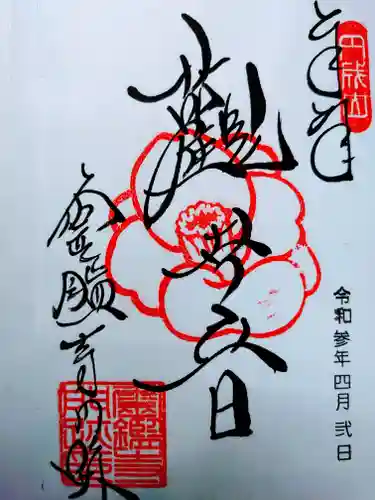 奉拝
円成山
觀世音
霊鑑寺門跡
令和参年四月弐日